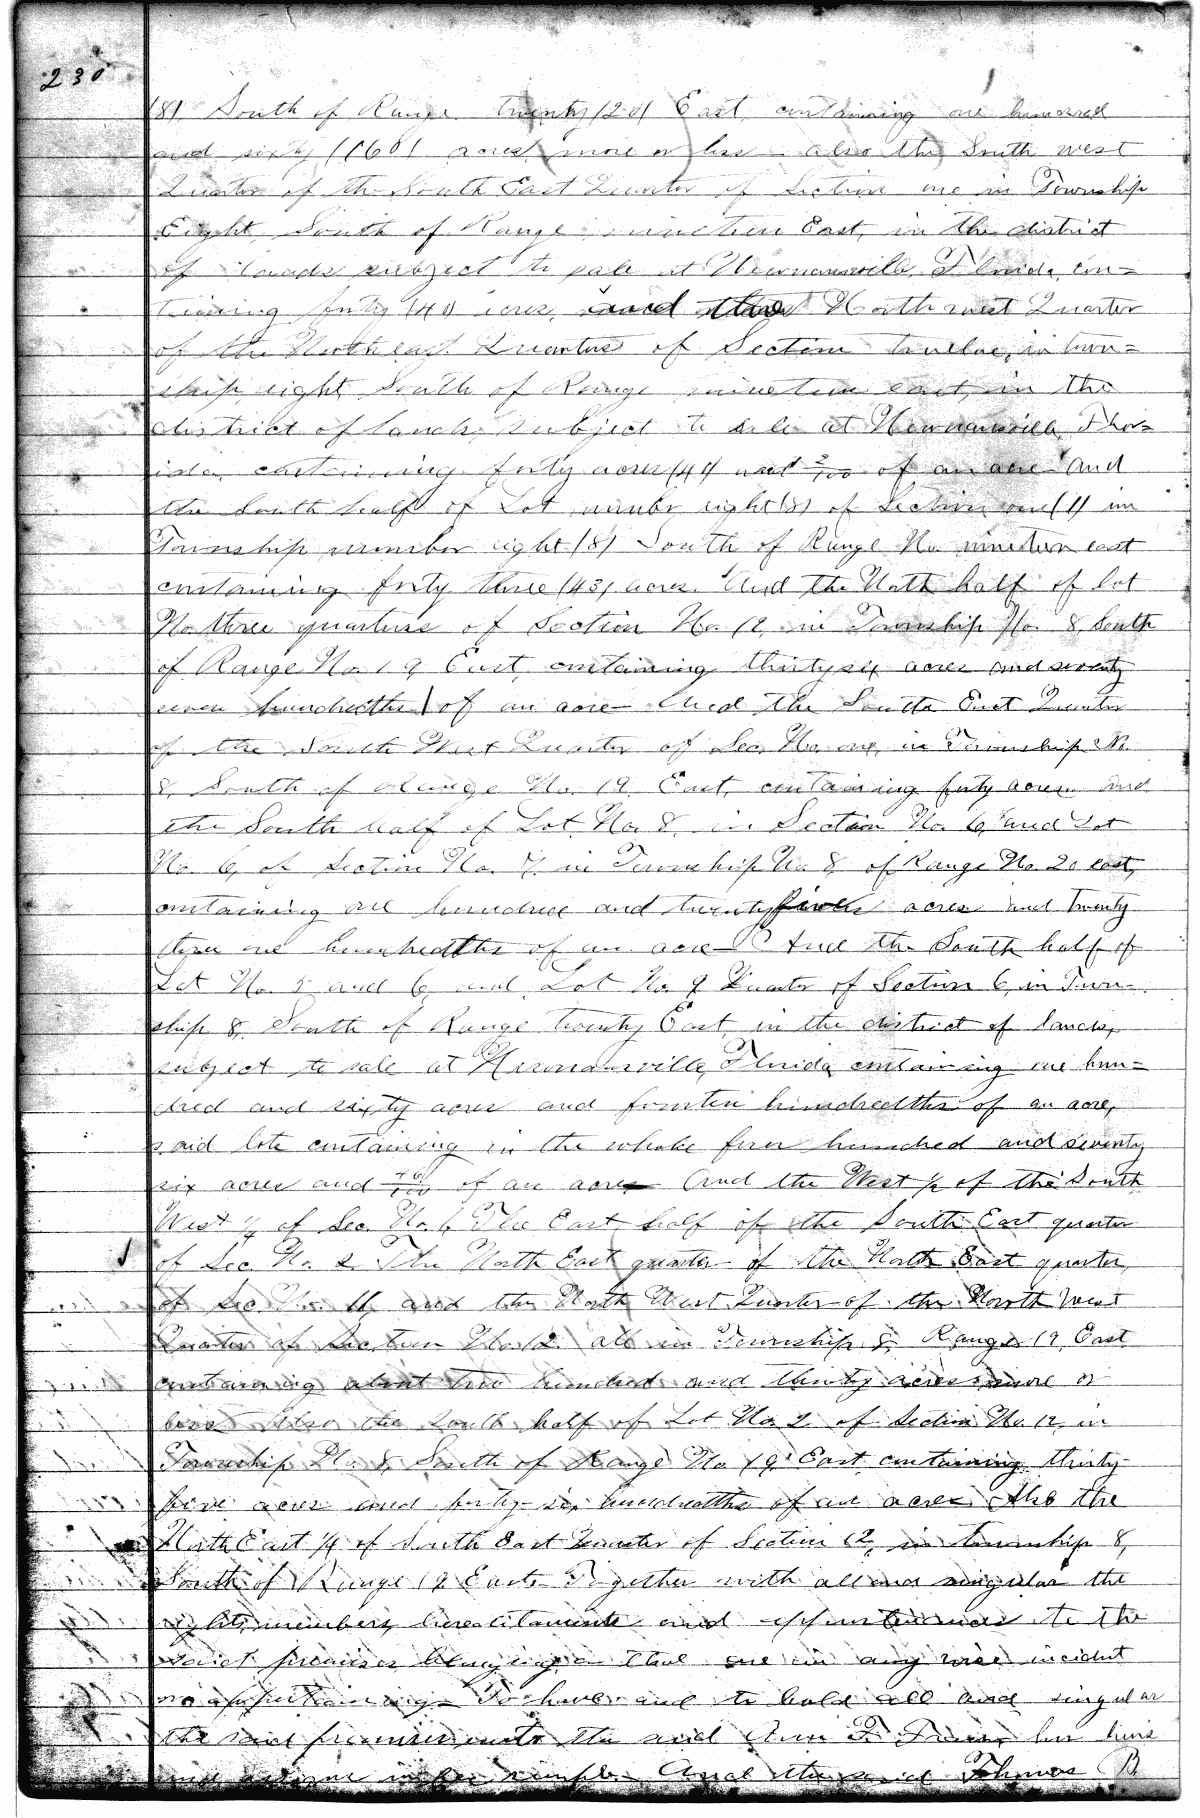 230
(8) South of Range twenty (20) East, containing one hundred
and sixty (160) acres, more or less — also the South west
Quarter of the South East Quarter of Section one in Township
Eight, South of Range nineteen East, in the district
of lands subject to sale at Newnansville, Florida, con=
taining forty (40) acres, and the North west Quarter
of the North east Quarter of Section twelve, in town=
ship eight South of Range nineteen east, in the
district of lands, subject to sale at Newnansville, Flor=
ida, containing forty acres (40) and 2/100 of an acre And
the South half of Lot number eight (8) of Section one (1) in
Township number eight (8) South of Range No. nineteen east
containing forty three (43) acres. And the North half of lot
No. three quarters of Section No. 12, in Township No. 8, South
of Range No. 19 East, containing thirty six acres and seventy
seven hundredths of an acre And the South East Quarter
of the South West Quarter of Sec. No. one, in Township No.
8, South of Range No. 19, East, containing forty acres And
the South half of Lot No. 8, in Section No. 6, and Lot
No. 6, of Section No. 7, in Township No. 8, of Range No. 20 east,
containing one hundred and twenty five acres and twenty
three one hundredths of an acre — And the South half of
Lot No. and 6, and Lot No. Quarter of Section 6, in Town=
ship 8, South of Range twenty East, in the district of lands,
subject to sale at Newnansville, Florida, containing one hun=
dred and sixty acres and fourteen hundredths of an acre,
said lots containing in the whole four hundred and seventy
six acres and 46/100 of an acre — And the West ½ of the South
West ¼ of Sec. No. 6, The East half of the South East quarter
of Sec. No. 2. The North East quarter of the North East quarter
of Sec. No. 11 and the North West Quarter of the North West
Quarter of Section No. 12 all in Township 8, Range 19, East
containing about two hundred and thirty acres, more or
less Also the South half of Lot No. 2 of Section No. 12, in
Township No. 8, South of Range No. 19 East, containing thirty
five acres and forty six hundredths of an acre, Also the
North East ¼ of South East Quarter of Section 12, in township 8,
South of Range 19 East. Together with all and singular the
rights, members, hereditaments and appurtenances to the
said premises belonging or that are in any wise incident
or appertaining — To have and to hold all and singular
the said premises unto the said Ann F. her heirs
and assigns in fee simple. And the said Thomas B.